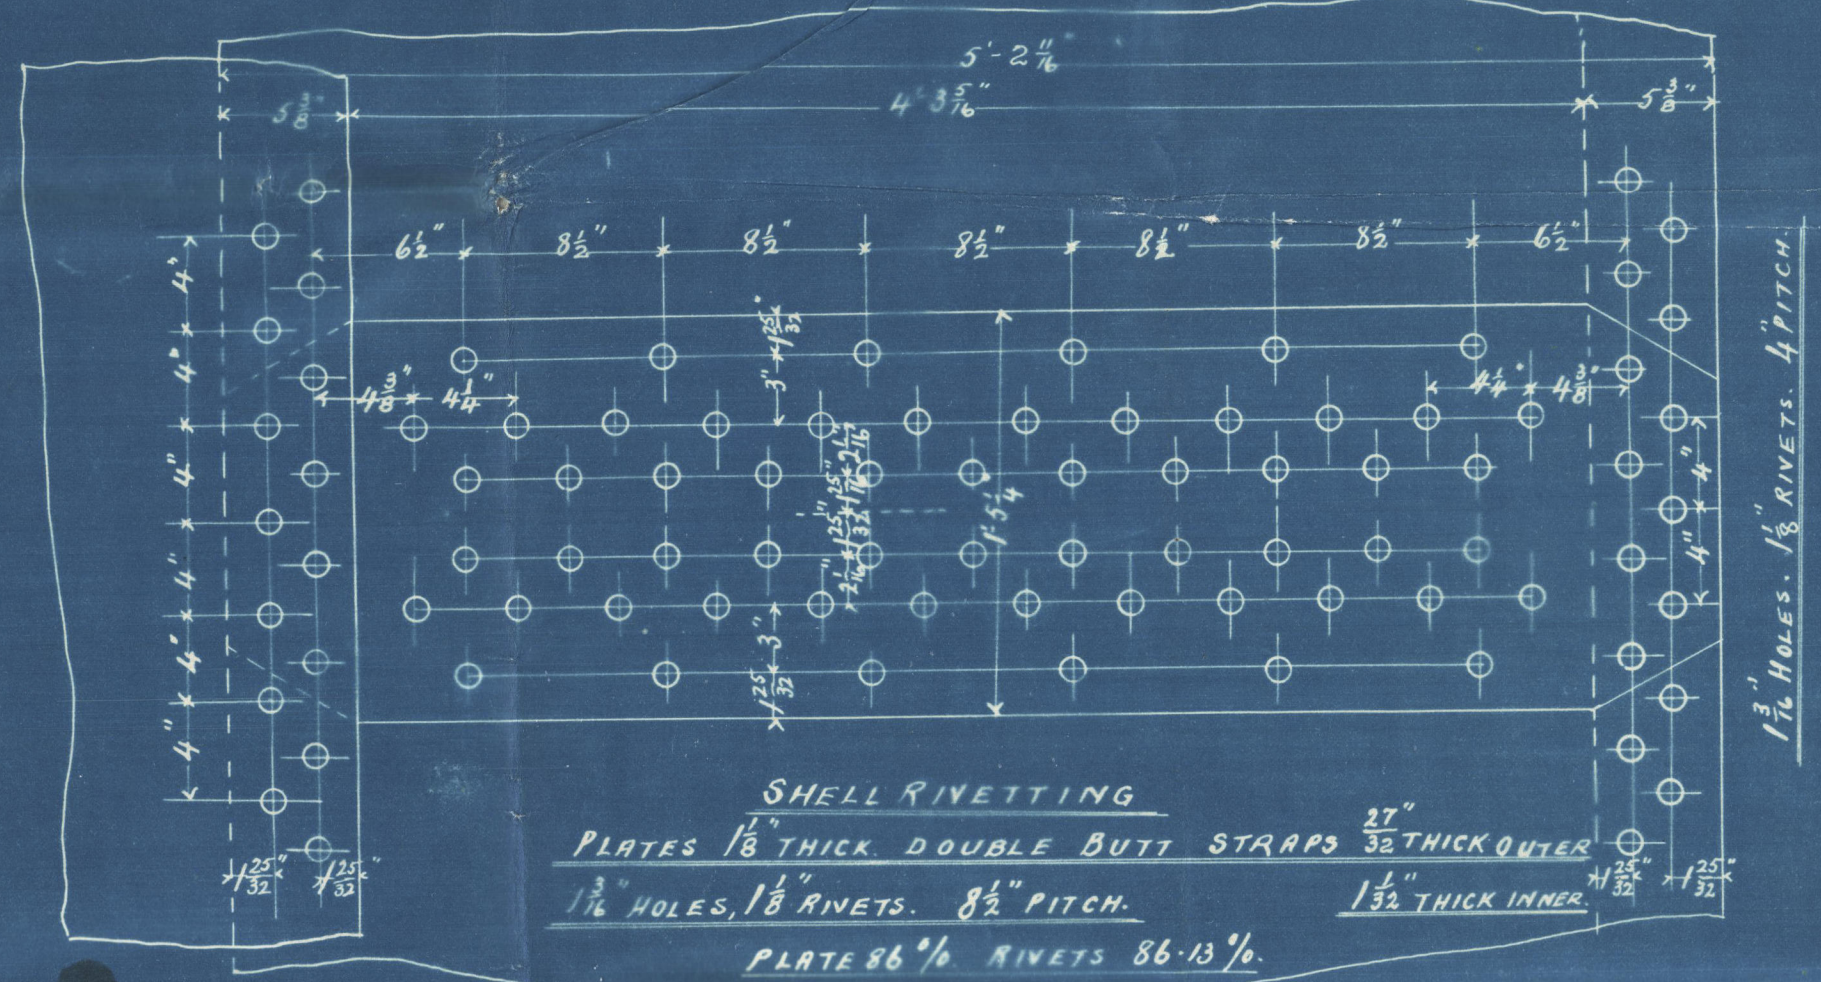 5'-2 11/16"
4'-3 5/16"
5 3/8"
5 3/8"
6 1/2" 8 1/2" 8 1/2" 8 1/2" 8 1/2" 8 1/2" 6 1/2"
4"
4"
4"
4"
4"
4"
4 3/8" 4 1/4"
4 1/4" 4 3/8"
1 25/32"
3"
2 1/16"
1 25/32"
1 25/32"
2 1/16"
1'-5 1/4"
3"
1 25/32"
4"
4"
1 3/16" HOLES. 1 1/8" RIVETS. 4" PITCH.
1 25/32" 1 25/32"
1 25/32" 1 25/32"
SHELL RIVETTING
PLATES 1 1/8" THICK. DOUBLE BUTT STRAPS 27/32" THICK OUTER
1 3/16" HOLES, 1 1/8" RIVETS. 8 1/2" PITCH. 1 1/32" THICK INNER.
PLATE 86%. RIVETS 86·13%.